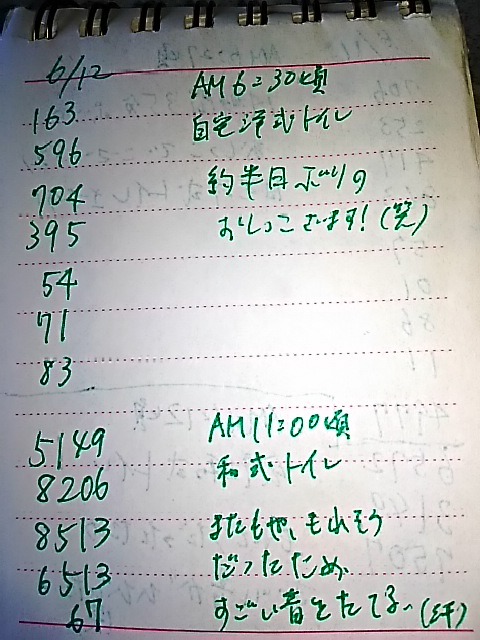 6/12 AM6:30頃
163 自宅洋式トイレ
596
704 約半日ぶりの
395 おしっこでます!(笑)
54
71
83
5149 AM11:00頃
8206 和式トイレ
8513 またもや、もれそう
6513 だったため、
67 すごい音をたてる。(汗)